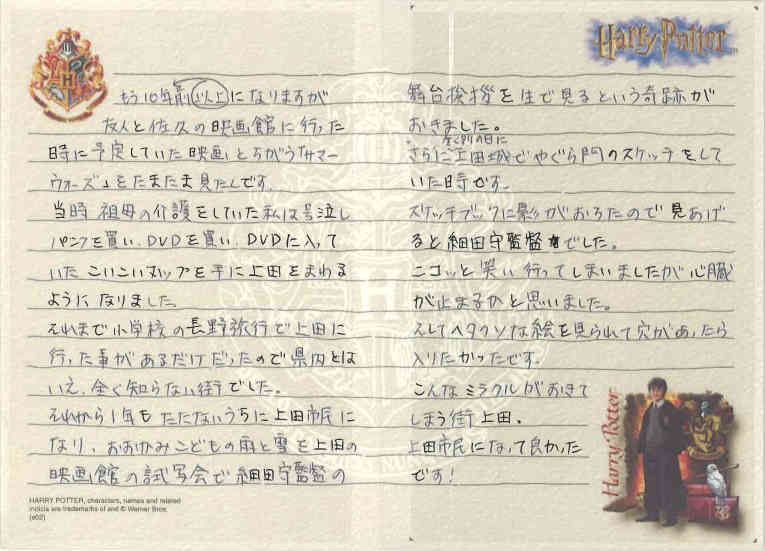 Harry Potter
もう10年前以上になりますが
友人と佐久の映画館に行った
時に予定していた映画とちがう「サマー
ウォーズ」をたまたま見たんです。
当時 祖母の介護をしていた私は号泣し
パンフを買い、DVDを買い、DVDに入って
いた こいこいマップを手に上田をまわる
ようになりました。
それまで小学校の長野旅行で上田に
行った事があるだけだったので県内とは
いえ、全く知らない街でした。
それから1年もたたないうちに上田市民に
なり、おおかみこどもの雨と雪を上田の
映画館の試写会で細田守監督の
舞台挨拶を生で見るという奇跡が
おきました。
全く別の日に
さらに上田城でやぐら門のスケッチをして
いた時です。
スケッチブックに影がおちたので見あげ
ると細田守監督でした。
ニコッと笑い行ってしまいましたが心臓
が止まるかと思いました。
そしてヘタクソな絵を見られて穴があったら
入りたかったです。
こんなミラクルがおきて
しまう街上田。
上田市民になって良かった
です!
Harry Potter
HARRY POTTER, characters, names and related
indicia are trademarks of and © Warner Bros.
(s02)